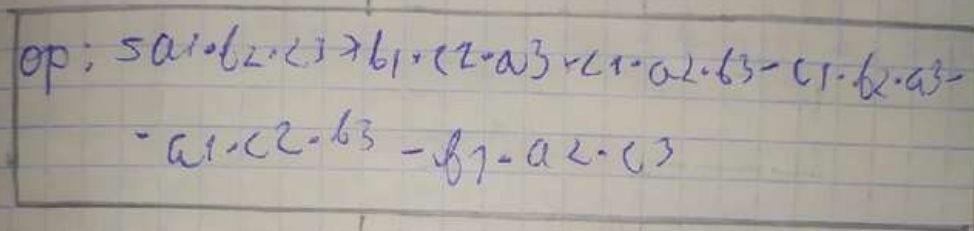 ор; 5a1·b2·c3+b1·c2·a3+c1·a2·b3-c1·b2·a3-
-a1·c2·b3-b1-a2·c3